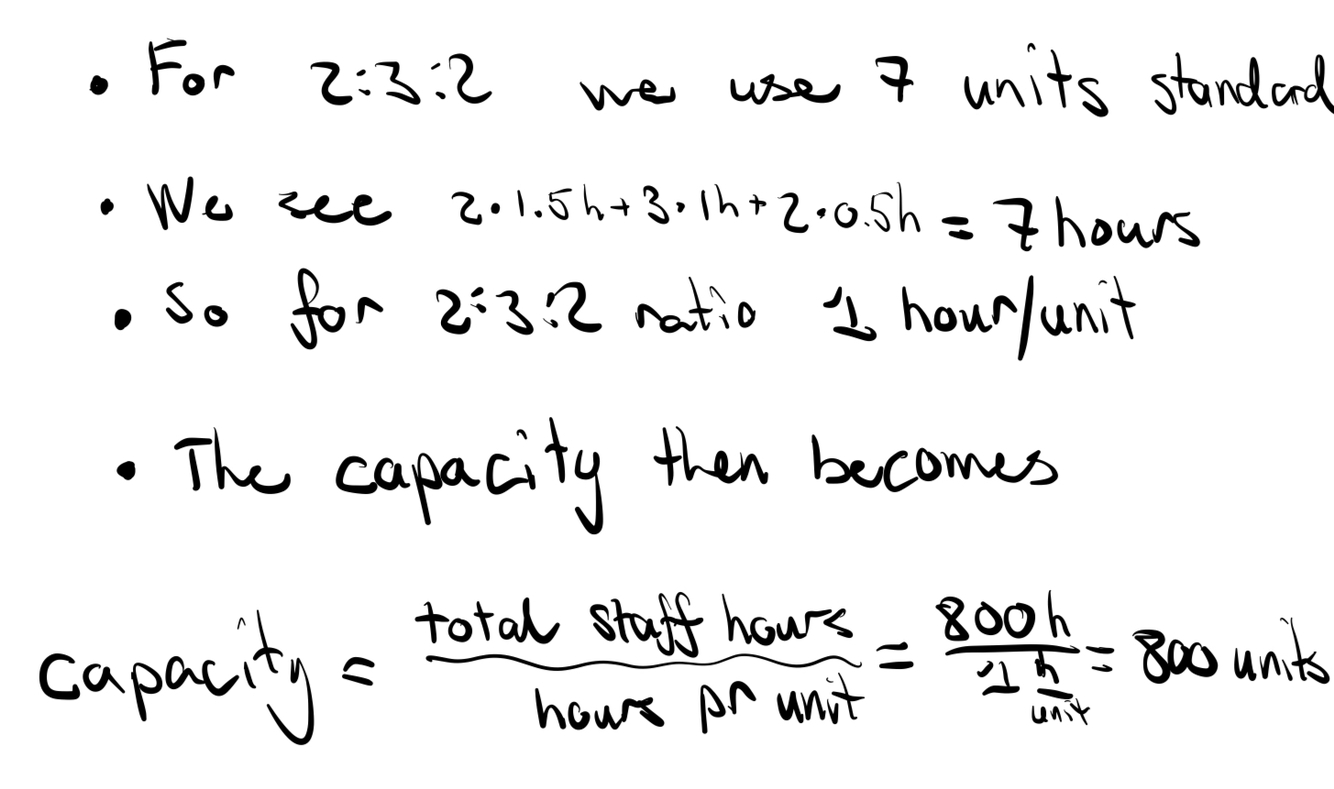 • For 2:3:2 we use 7 units standard
• We see 2·1.5h+3·1h+2·0.5h = 7 hours
• So for 2:3:2 ratio 1 hour/unit
• The capacity then becomes
capacity = total staff hours / hours pr unit = 800h / 1 h/unit = 800 units